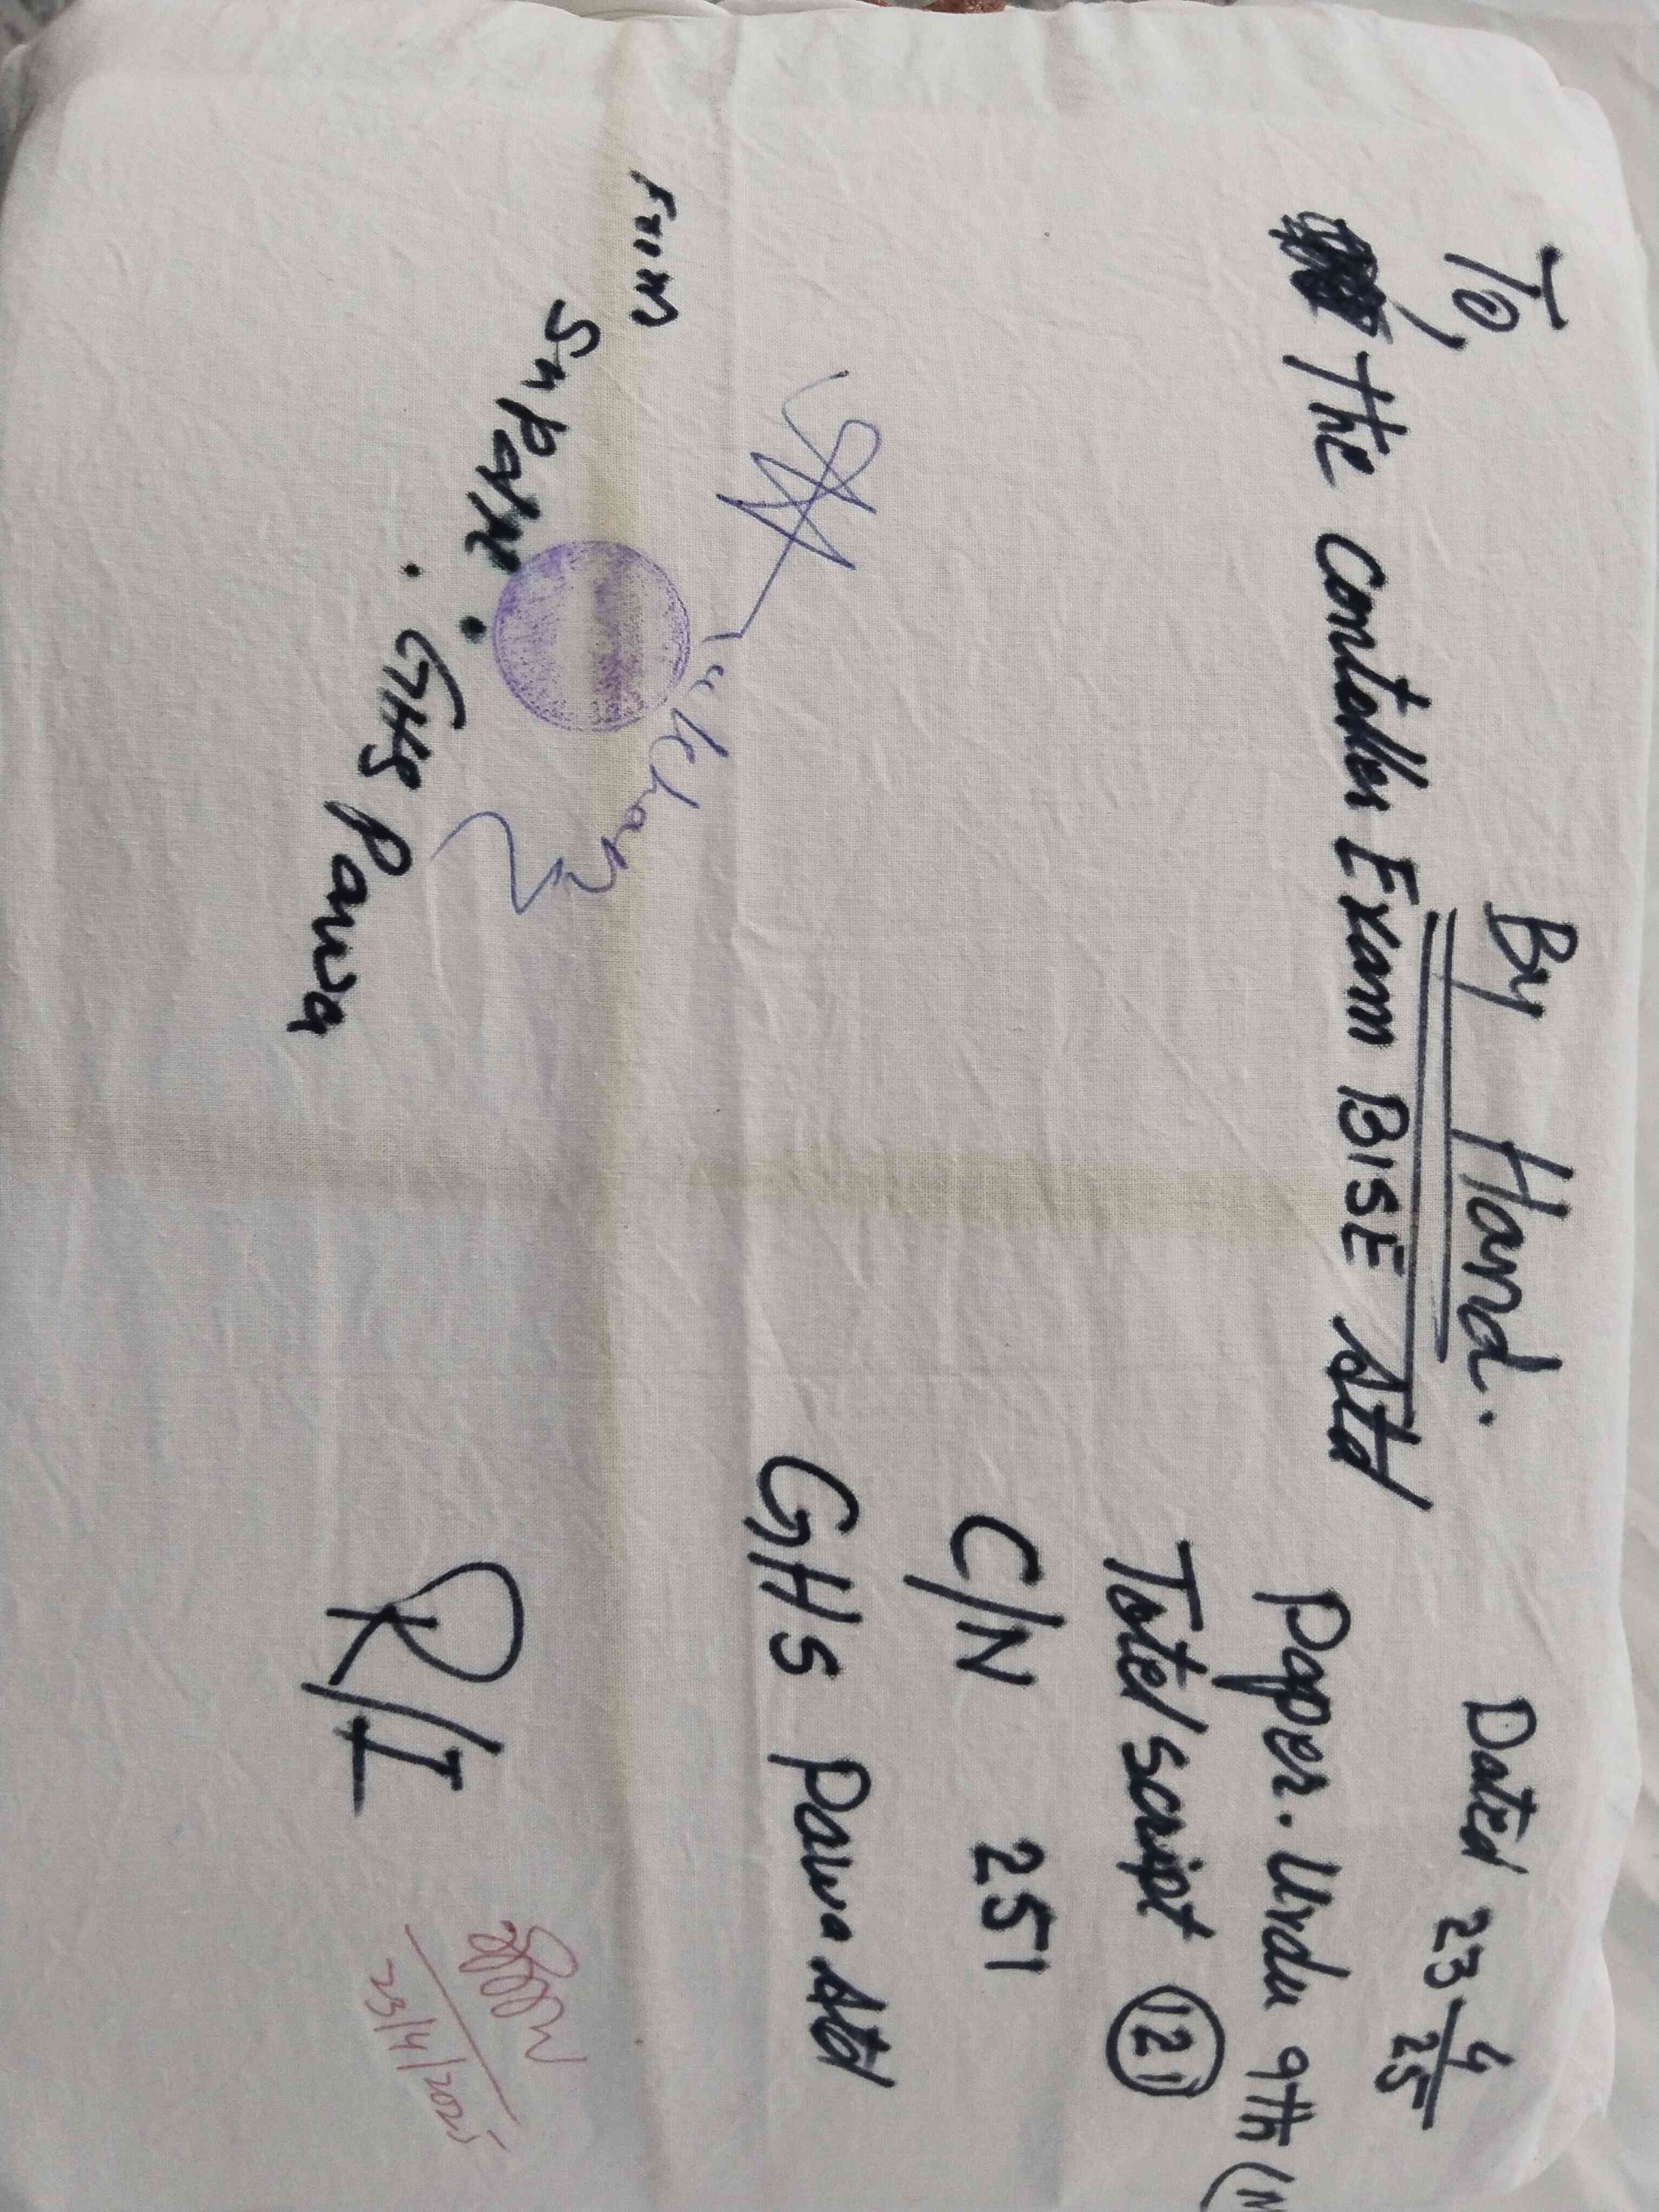 By Hand.
Dated 23 4/25
To,
The Contoller Exam BISE Atd
Paper. Urdu 9th (
Total script (121)
C/N 251
GHS Pawa Atd
From
GHS Pawa
R/I
23/4/2025